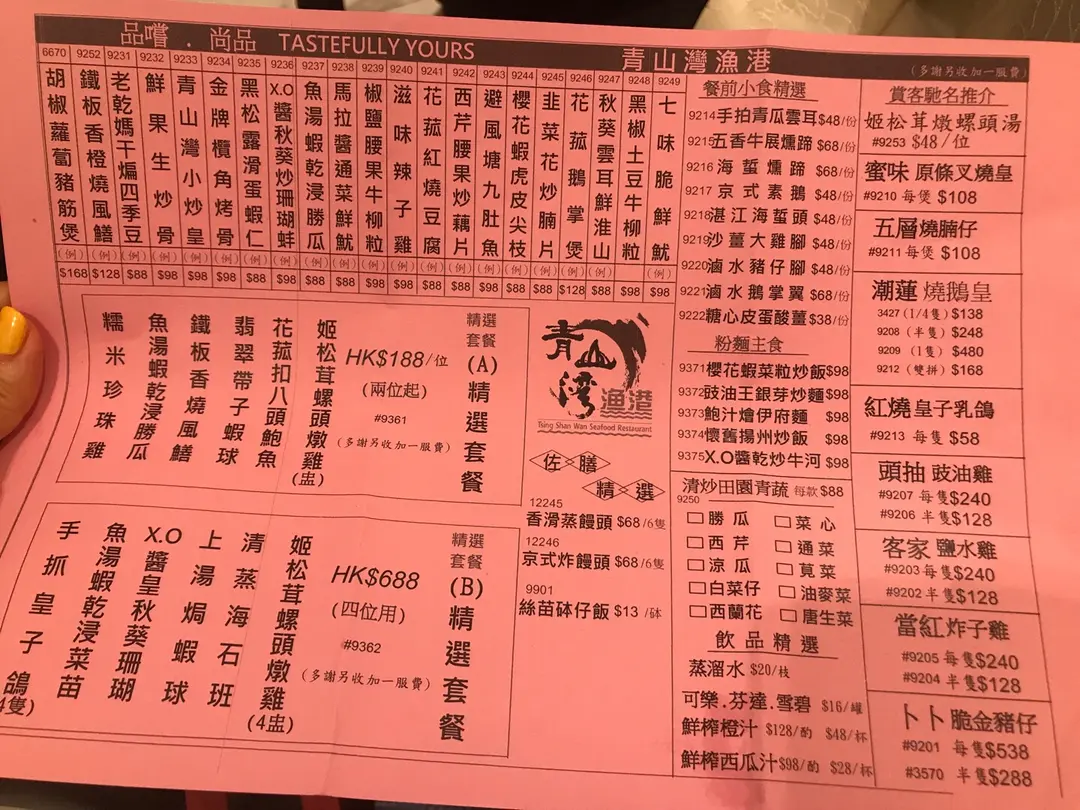 品嚐．尚品 TASTEFULLY YOURS
青山灣漁港
(多謝另收加一服費)
6670 胡椒蘿蔔豬筋煲 (例) $168
9252 鐵板香橙燒風鱔 (例) $128
9231 老乾媽干煸四季豆 (例) $88
9232 鮮果生炒骨 (例) $98
9233 青山灣小炒皇 (例) $98
9234 金牌欖角烤骨 (例) $98
9235 黑松露滑蛋蝦仁 (例) $88
9236 X.O醬秋葵炒珊瑚蚌 (例) $98
9237 魚湯蝦乾浸勝瓜 (例) $88
9238 馬拉醬通菜鮮魷 (例) $88
9239 椒鹽腰果牛柳粒 (例) $98
9240 滋味辣子雞 (例) $98
9241 花菰紅燒豆腐 (例) $88
9242 西芹腰果炒藕片 (例) $88
9243 避風塘九肚魚 (例) $98
9244 櫻花蝦虎皮尖枝 (例) $88
9245 韭菜花炒腩片 (例) $88
9246 花菰鵝掌煲 (例) $128
9247 秋葵雲耳鮮淮山 (例) $88
9248 黑椒土豆牛柳粒 $98
9249 七味脆鮮魷 (例) $98
精選套餐(A)精選套餐
HK$188/位
(兩位起)
#9361
(多謝另收加一服費)
姬松茸螺頭燉雞(盅)
花菰扣八頭鮑魚
翡翠帶子蝦球
鐵板香燒風鱔
魚湯蝦乾浸勝瓜
糯米珍珠雞
精選套餐(B)精選套餐
HK$688
(四位用)
#9362
(多謝另收加一服費)
姬松茸螺頭燉雞(4盅)
清蒸海石班
上湯焗蝦球
X.O醬皇秋葵珊瑚
魚湯蝦乾浸菜苗
手抓皇子鴿(4隻)
青山灣漁港
Tsing Shan Wan Seafood Restaurant
佐膳精選
12245
香滑蒸饅頭 $68/6隻
12246
京式炸饅頭 $68/6隻
9901
絲苗砵仔飯 $13 /砵
餐前小食精選
9214 手拍青瓜雲耳 $48/份
9215 五香牛展燻蹄 $68/份
9216 海蜇燻蹄 $68/份
9217 京式素鵝 $48/份
9218 湛江海蜇頭 $48/份
9219 沙薑大雞腳 $48/份
9220 滷水豬仔腳 $48/份
9221 滷水鵝掌翼 $68/份
9222 糖心皮蛋酸薑 $38/份
粉麵主食
9371 櫻花蝦菜粒炒飯 $98
9372 豉油王銀芽炒麵 $98
9373 鮑汁燴伊府麵 $98
9374 懷舊揚州炒飯 $98
9375 X.O醬乾炒牛河 $98
清炒田園青蔬 每款 $88
9250
□ 勝瓜 □ 菜心
□ 西芹 □ 通菜
□ 涼瓜 □ 莧菜
□ 白菜仔 □ 油麥菜
□ 西蘭花 □ 唐生菜
飲品精選
蒸溜水 $20/枝
可樂.芬達.雪碧 $16/罐
鮮榨橙汁 $128/酌 $48/杯
鮮榨西瓜汁 $98/酌 $28/杯
賞客馳名推介
姬松茸燉螺頭湯
#9253 $48/位
蜜味 原條叉燒皇
#9210 每煲 $108
五層燒腩仔
#9211 每煲 $108
潮蓮 燒鵝皇
3427 (1/4隻) $138
9208 (半隻) $248
9209 (1隻) $480
9212 (雙拼) $168
紅燒 皇子乳鴿
#9213 每隻 $58
頭抽 豉油雞
#9207 每隻$240
#9206 半隻$128
客家 鹽水雞
#9203 每隻$240
#9202 半隻$128
當紅 炸子雞
#9205 每隻$240
#9204 半隻$128
卜卜 脆金豬仔
#9201 每隻$538
#3570 半隻$288